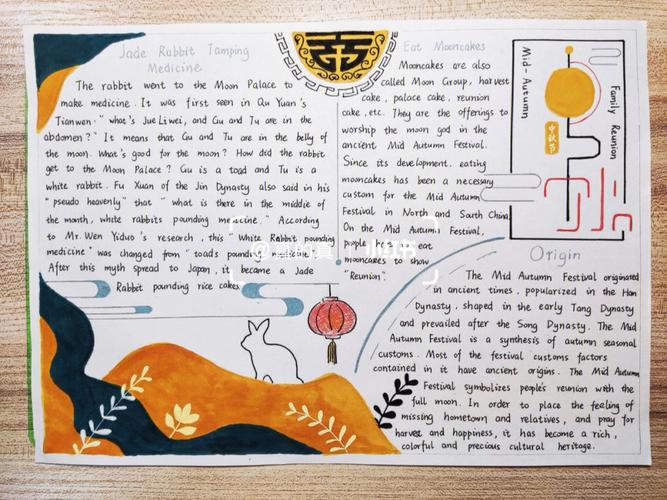 Jade Rabbit Tamping
Medicine
The rabbit went to the Moon Palace to
make medicine. It was first seen in Qu Yuan's
Tianwen." what's Jue Liwei, and Gu and Tu are in the
abdomen?" It means that Gu and Tu are in the belly of
the moon. What's good for the moon? How did the rabbit
get to the Moon Palace? Gu is a toad and Tu is a
white rabbit. Fu Xuan of the Jin Dynasty also said in his
"pseudo heavenly" that "what is there in the middle of
the month, white rabbits pounding medicine." According
to Mr. Wen Yiduo's research, this "White Rabbit pounding
medicine" was changed from "toads pounding
After this myth spread to Japan, it became a Jade
Rabbit pounding rice cakes
Eat Mooncakes
Mooncakes are also
called Moon Group, harvest
cake, palace cake, reunion
cake, etc. They are the offerings to
worship the moon god in the
ancient Mid Autumn Festival.
Since its development. eating
mooncakes has been a necessary
custom for the Mid Autumn
Festival in North and South China
On the Mid Autumn Festival,
people eat
mooncakes to show
"Reunion".
Mid-Autumn
Family Reunion
中秋节
Origin
The Mid Autumn Festival originated
in ancient times, popularized in the Han
Dynasty, shaped in the early Tang Dynasty
and prevailed after the Song Dynasty. The Mid
Autumn Festival is a synthesis of autumn seasonal
customs. Most of the festival customs factors
contained in it have ancient origins. The Mid Autumn
Festival symbolizes people's reunion with the
full moon. In order to place the feeling of
missing hometown and relatives, and pray for
harvest and happiness, it has become a rich,
colorful and precious cultural heritage.